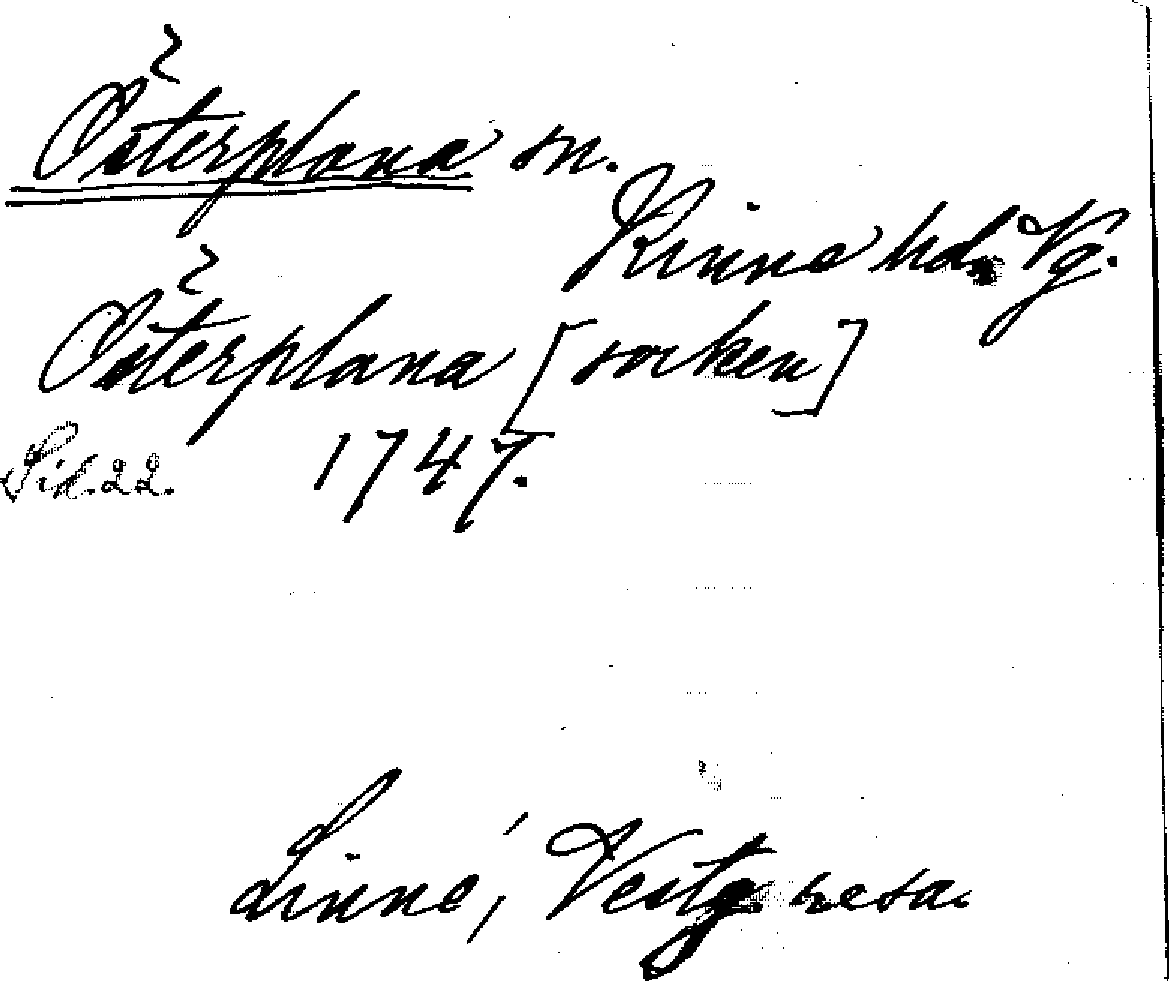 Österplana sn.
Kinne hd. Vg.
Österplana [socken]
Sid. 22. 1747.
Linné, Vestg. resa.